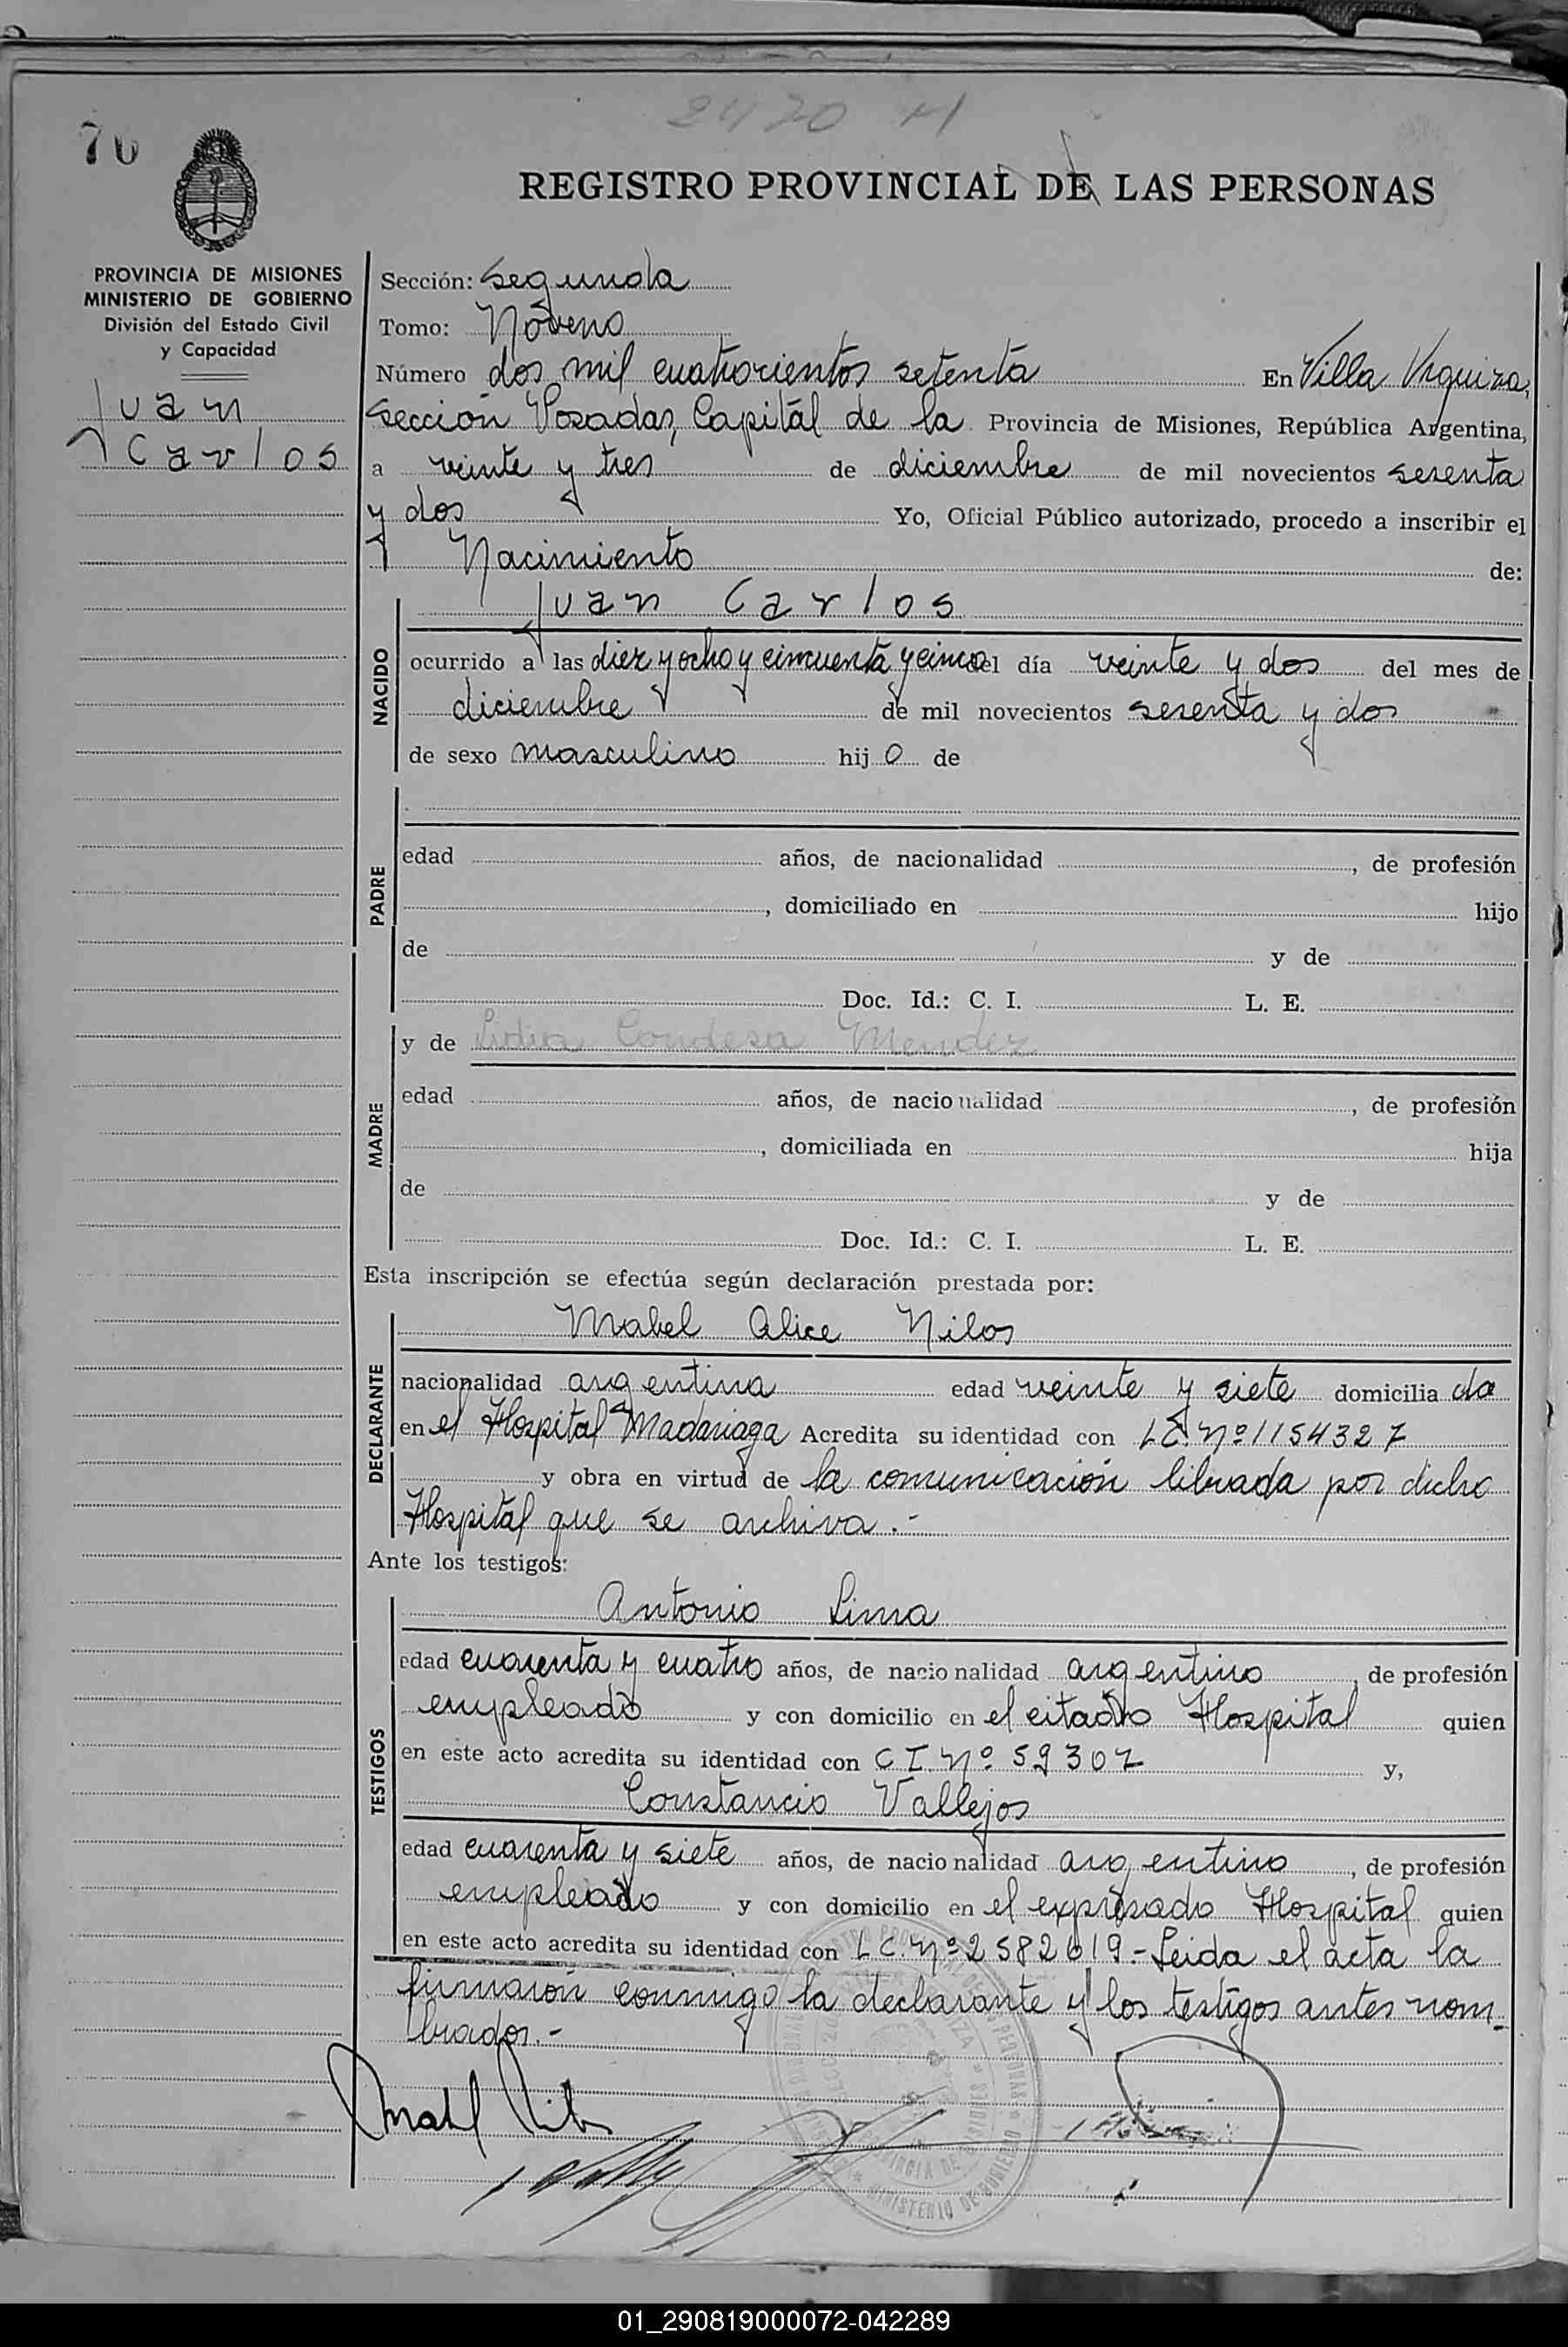 2470 H
70
REGISTRO PROVINCIAL DE LAS PERSONAS
PROVINCIA DE MISIONES
MINISTERIO DE GOBIERNO
División del Estado Civil
y Capacidad
Juan
Carlos
Sección: Segunda
Tomo: Noveno
Número dos mil cuatrocientos setenta En Villa Urquiza,
sección Posadas, Capital de la Provincia de Misiones, República Argentina,
a veinte y tres de diciembre de mil novecientos sesenta
y dos Yo, Oficial Público autorizado, procedo a inscribir el
Nacimiento de:
NACIDO
Juan Carlos
ocurrido a las diez y ocho y cincuenta y cinco del día veinte y dos del mes de
diciembre de mil novecientos sesenta y dos
de sexo masculino hij o de
PADRE
edad años, de nacionalidad , de profesión
, domiciliado en hijo
de y de
Doc. Id.: C. I. L. E.
MADRE
y de Lidia Condesa Mendez
edad años, de nacionalidad , de profesión
, domiciliada en hija
de y de
Doc. Id.: C. I. L. E.
Esta inscripción se efectúa según declaración prestada por:
DECLARANTE
Mabel Alice Nilos
nacionalidad argentina edad veinte y siete domicilia da
en el Hospital Madariaga Acredita su identidad con L.E. Nº 1154327
y obra en virtud de la comunicación librada por dicho
Hospital que se archiva.-
Ante los testigos:
TESTIGOS
Antonio Lima
edad cuarenta y cuatro años, de nacionalidad argentino, de profesión
empleado y con domicilio en el citado Hospital quien
en este acto acredita su identidad con C.I. Nº 59302 y,
Constancio Vallejos
edad cuarenta y siete años, de nacionalidad argentino, de profesión
empleado y con domicilio en el expresado Hospital quien
en este acto acredita su identidad con L.C. Nº 2582619.- Leida el acta la
firmaron conmigo la declarante y los testigos antes nom-
brados.-
01_290819000072-042289